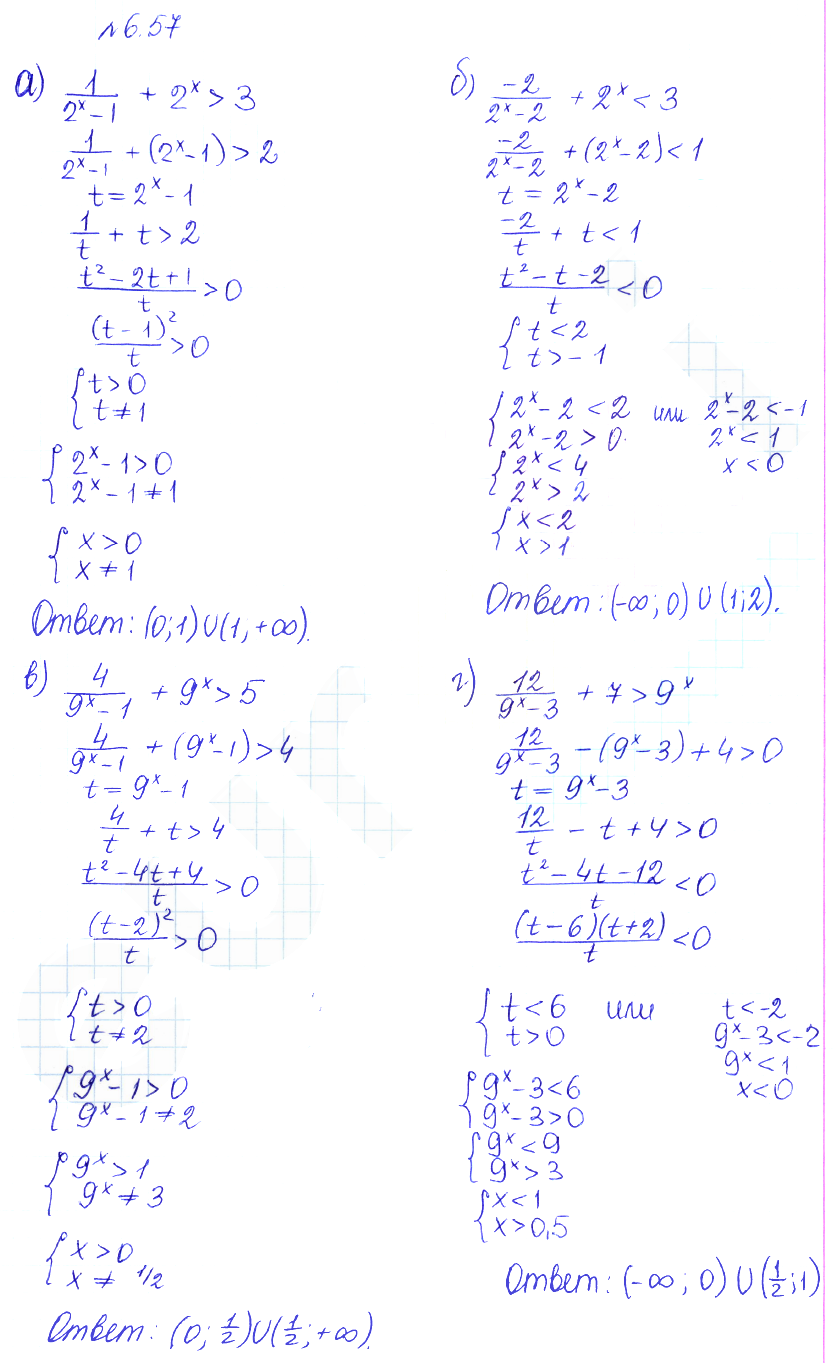 №6.57
а) 1/(2^x-1) + 2^x > 3
1/(2^x-1) + (2^x-1) > 2
t = 2^x - 1
1/t + t > 2
(t² - 2t + 1)/t > 0
(t-1)²/t > 0
{ t > 0
t ≠ 1
{ 2^x - 1 > 0
2^x - 1 ≠ 1
{ x > 0
x ≠ 1
Ответ: (0;1)∪(1,+∞).
б) -2/(2^x-2) + 2^x < 3
-2/(2^x-2) + (2^x-2) < 1
t = 2^x - 2
-2/t + t < 1
(t² - t - 2)/t < 0
{ t < 2
t > -1
{ 2^x - 2 < 2 или 2^x - 2 < -1
2^x - 2 > 0 2^x < 1
{ 2^x < 4 x < 0
2^x > 2
{ x < 2
x > 1
Ответ: (-∞; 0)∪(1;2).
в) 4/(9^x-1) + 9^x > 5
4/(9^x-1) + (9^x-1) > 4
t = 9^x - 1
4/t + t > 4
(t² - 4t + 4)/t > 0
(t-2)²/t > 0
{ t > 0
t ≠ 2
{ 9^x - 1 > 0
9^x - 1 ≠ 2
{ 9^x > 1
9^x ≠ 3
{ x > 0
x ≠ 1/2
Ответ: (0; 1/2)∪(1/2; +∞).
г) 12/(9^x-3) + 7 > 9^x
12/(9^x-3) - (9^x-3) + 4 > 0
t = 9^x - 3
12/t - t + 4 > 0
(t² - 4t - 12)/t < 0
(t-6)(t+2)/t < 0
{ t < 6 или t < -2
t > 0 9^x - 3 < -2
9^x < 1
{ 9^x - 3 < 6 x < 0
9^x - 3 > 0
{ 9^x < 9
9^x > 3
{ x < 1
x > 0,5
Ответ: (-∞; 0)∪(1/2; 1)